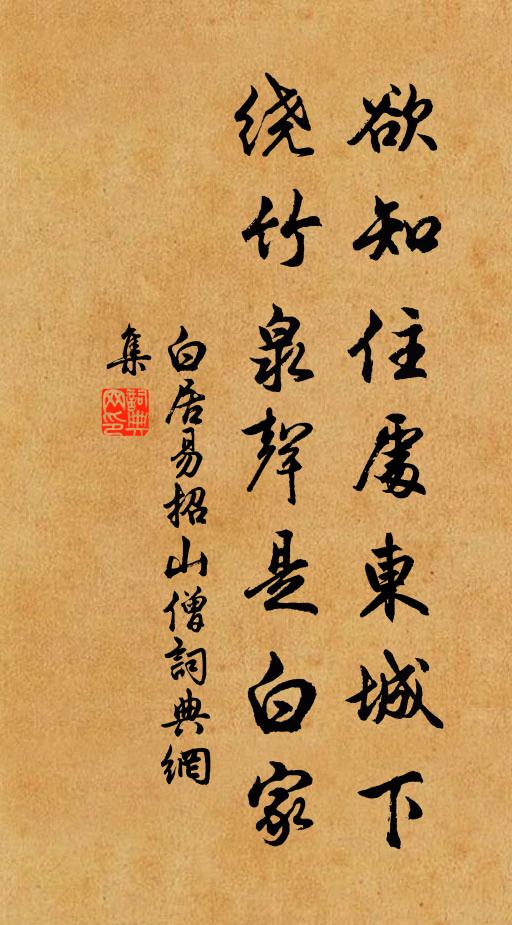 欲知住處東城下
绕竹泉聲是白家
白居易招山僧詞典網
集
詞典
网印